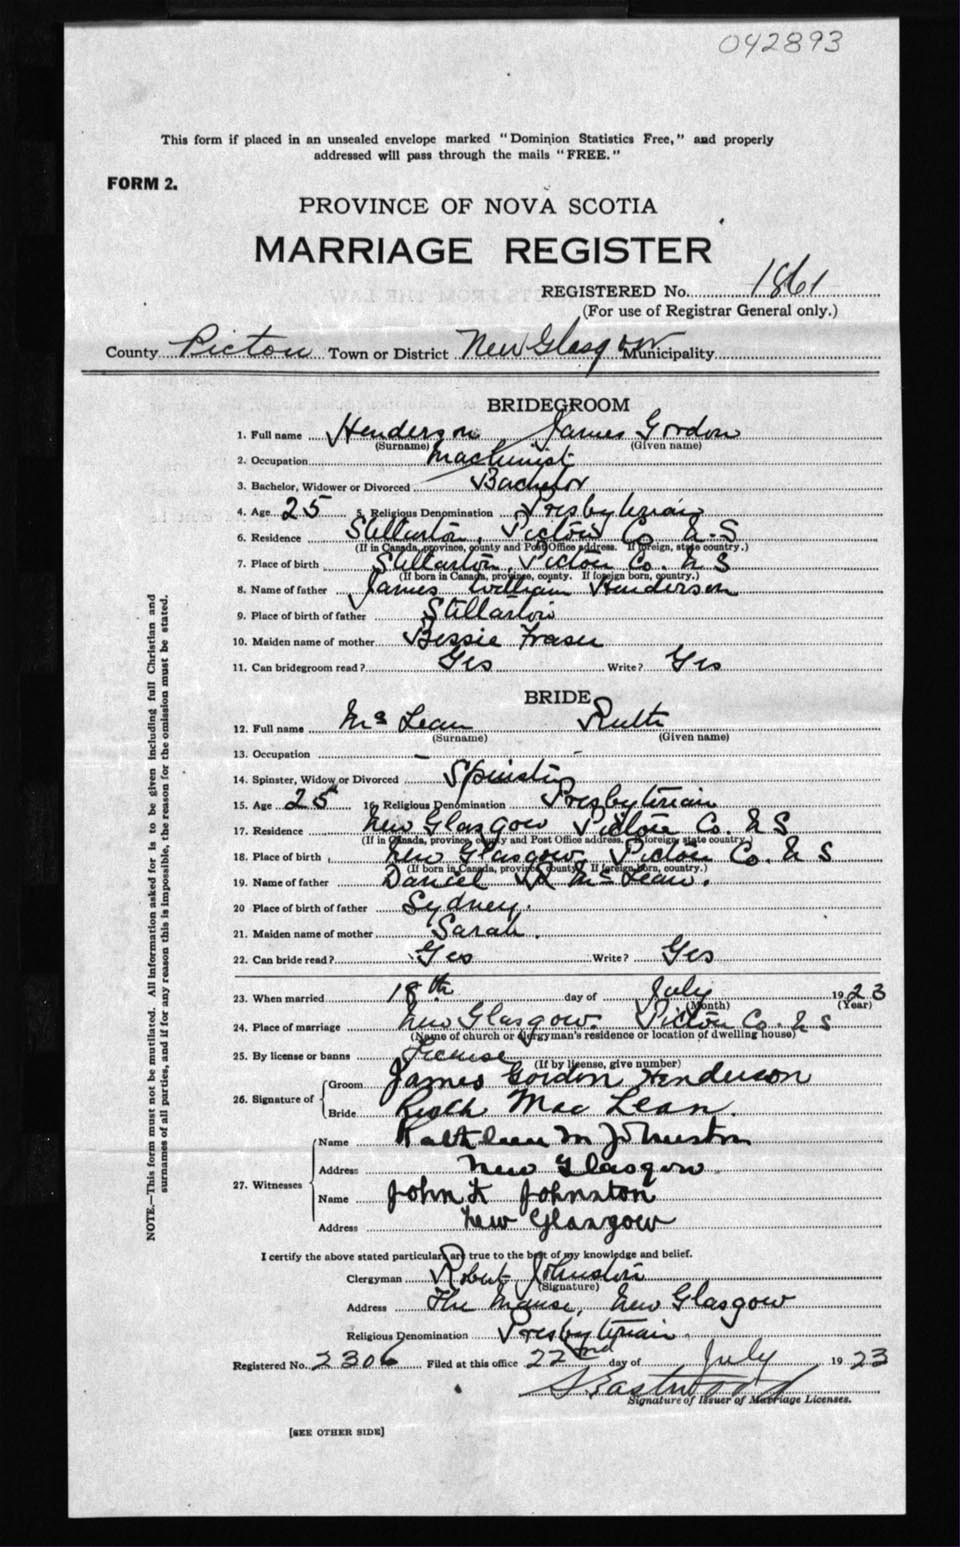 042893
This form if placed in an unsealed envelope marked "Dominion Statistics Free," and properly
addressed will pass through the mails "FREE."
FORM 2.
PROVINCE OF NOVA SCOTIA
MARRIAGE REGISTER
REGISTERED No. 1861
(For use of Registrar General only.)
County Pictou Town or District New Glasgow Municipality
BRIDEGROOM
1. Full name Henderson James Gordon
(Surname) (Given name)
2. Occupation Machinist
3. Bachelor, Widower or Divorced Bachelor
4. Age 25 5. Religious Denomination Presbyterian
6. Residence Stellarton, Pictou Co N.S
(If in Canada, province, county and Post Office address. If foreign, state country.)
7. Place of birth Stellarton, Pictou Co. N S
(If born in Canada, province, county. If foreign born, country.)
8. Name of father James William Henderson
9. Place of birth of father Stellarton
10. Maiden name of mother Bessie Fraser
11. Can bridegroom read? Yes Write? Yes
BRIDE
12. Full name McLean Ruth
(Surname) (Given name)
13. Occupation – –
14. Spinster, Widow or Divorced Spinster
15. Age 25 16. Religious Denomination Presbyterian
17. Residence New Glasgow Pictou Co. N S
(If in Canada, province, county and Post Office address. If foreign state country.)
18. Place of birth New Glasgow, Pictou Co. N S
(If born in Canada, province, county. If foreign born, country.)
19. Name of father Daniel McLean.
20 Place of birth of father Sydney.
21. Maiden name of mother Sarah.
22. Can bride read? Yes Write? Yes
23. When married 18th day of July 1923
(Month) (Year)
24. Place of marriage New Glasgow. Pictou Co. N S
(Name of church or clergyman's residence or location of dwelling house)
25. By license or banns License
(If by license, give number)
26. Signature of Groom James Gordon Henderson
Bride Ruth MacLean.
27. Witnesses Name Kathleen M Johnston
Address New Glasgow
Name John K Johnston
Address New Glasgow
I certify the above stated particulars are true to the best of my knowledge and belief.
Clergyman Robert Johnston
(Signature)
Address The Manse, New Glasgow
Religious Denomination Presbyterian.
Registered No. 2306 Filed at this office 22nd day of July 1923
S Eastwood
Signature of Issuer of Marriage Licenses.
[SEE OTHER SIDE]
NOTE.—This form must not be mutilated. All information asked for is to be given including full Christian and
surnames of all parties, and if for any reason this is impossible, the reason for the omission must be stated.